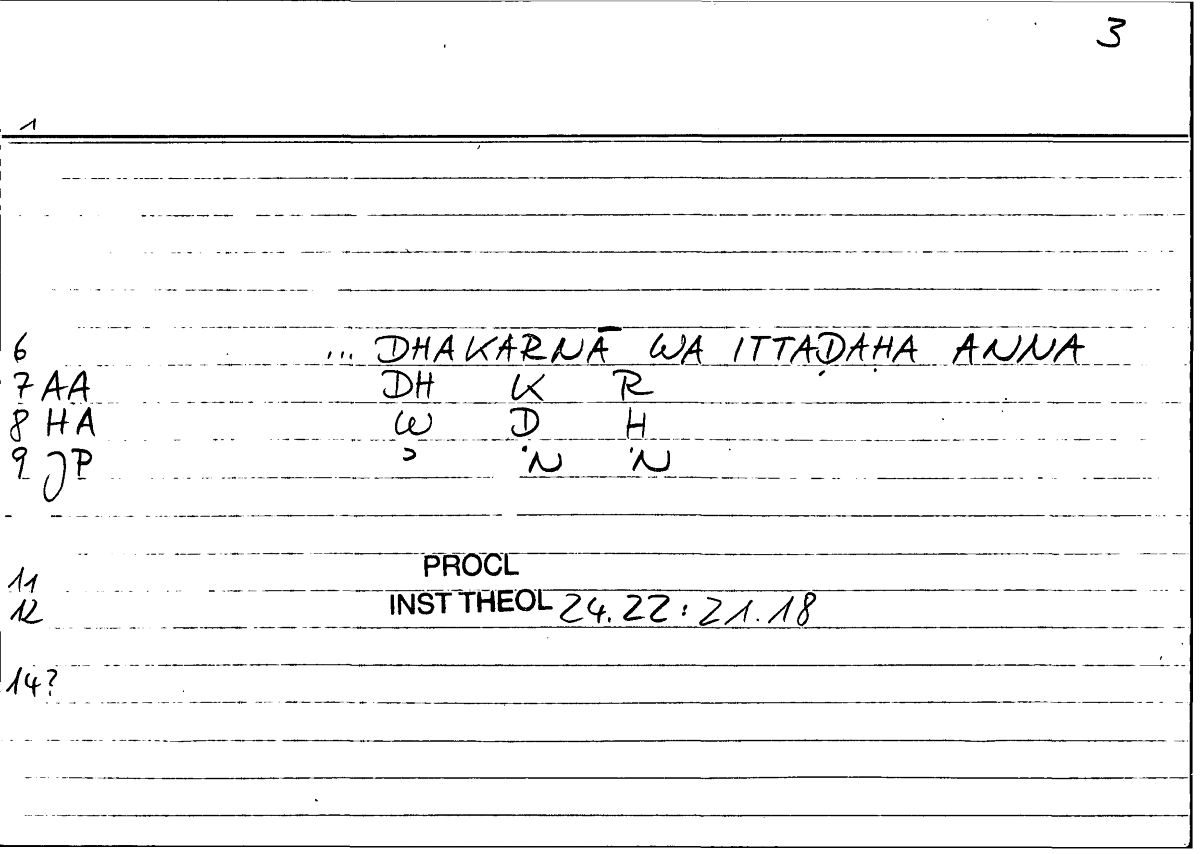 3
1
6 ... DHAKARNĀ WA ITTAḌAḤA ANNA
7 AA DH K R
8 HA W D H
9 JP ɔ ·N ·N
11 PROCL
12 INST THEOL 24.22:21.18
14?